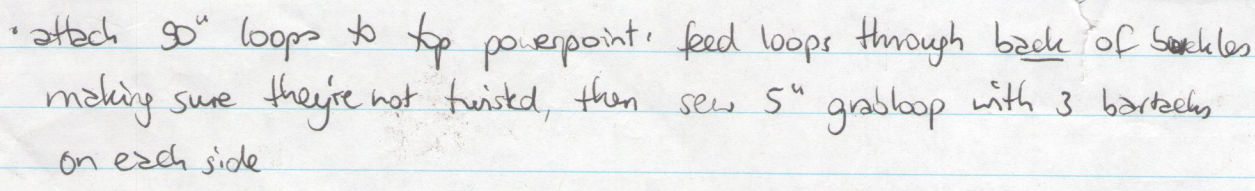 · attach 90" loops to top powerpoint. feed loops through back of buckles
making sure they're not twisted, then sew 5" grabloop with 3 bartacks
on each side